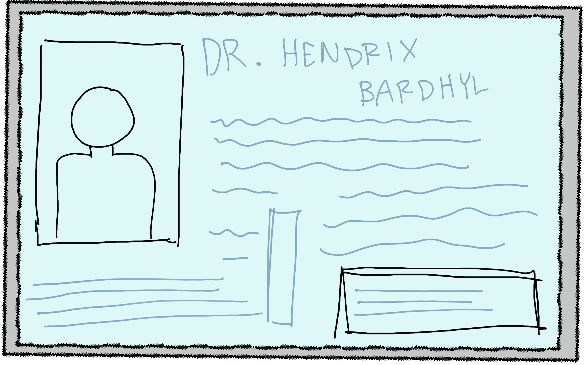 DR. HENDRIX
BARDHYL